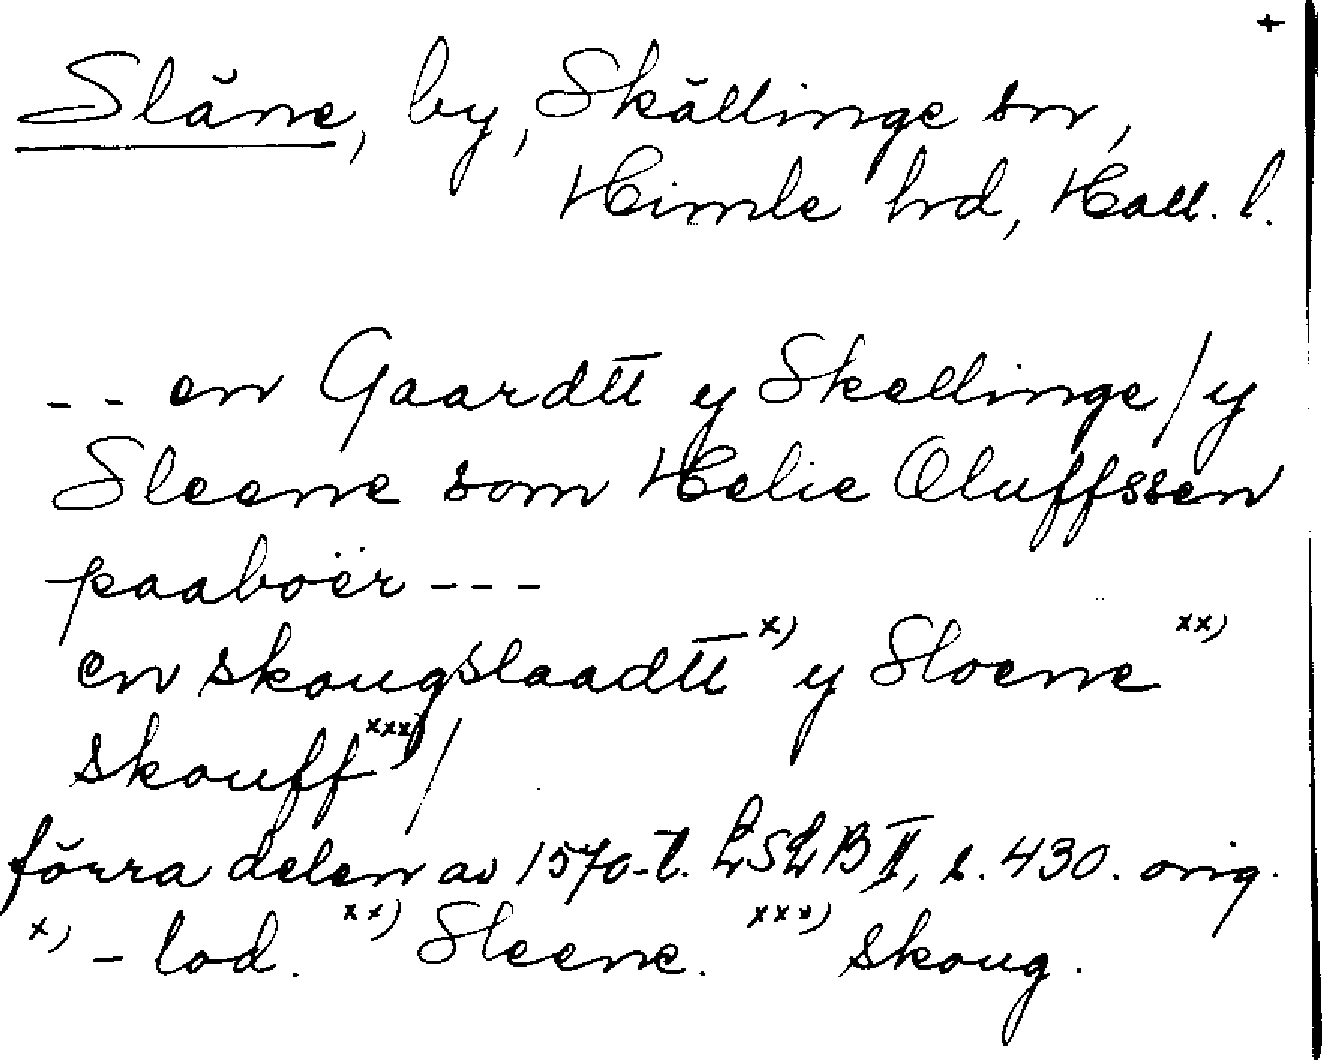 +
Släne, by, Skällinge sn,
Himle hrd, Hall. l.
-- en Gaardtt y Skellinge / y
Sleene som Helie Oluffssen
paaboër ---
en skougslaadtt x) y Sloene xx)
skouff xxx) /
förra delen av 1570-t. LSLB II, s. 430. orig.
x) -lod. xx) Sleene. xxx) skoug.